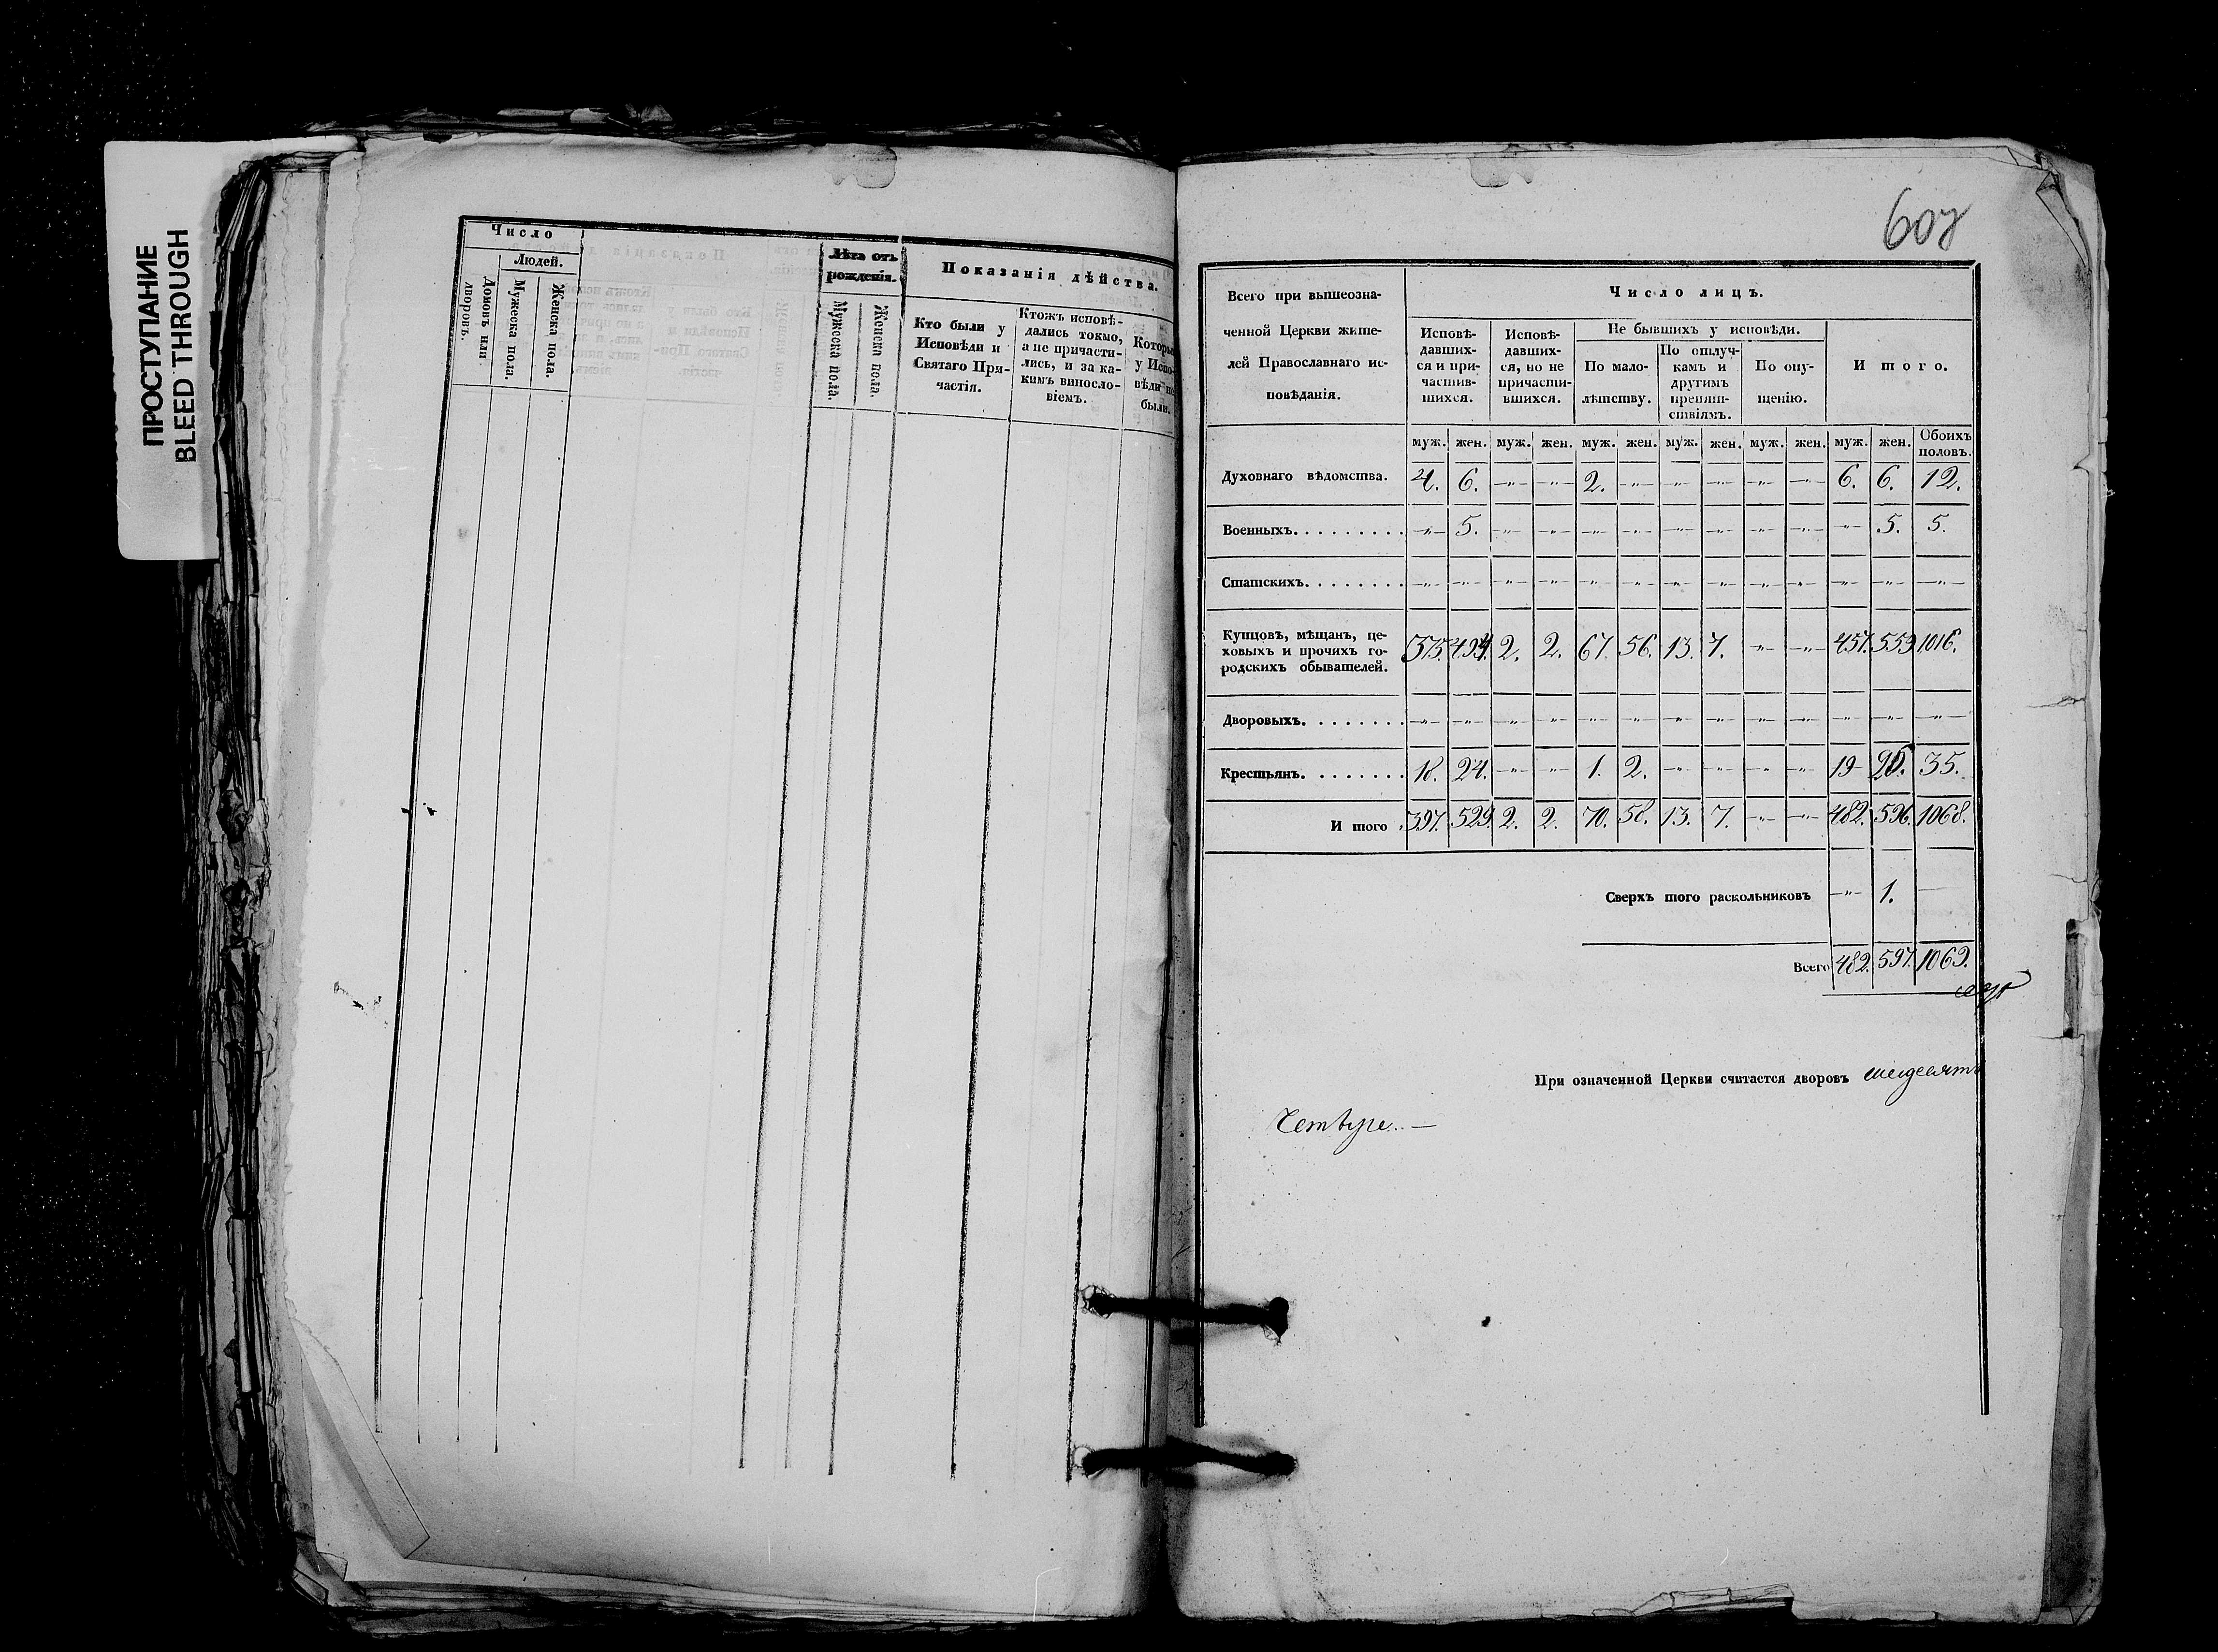 ПРОСТУПАНИЕ
BLEED THROUGH
Число
Людей.
Домовъ или дворовъ.
Мужеска пола.
Женска пола.
Лѣта отъ рожденія.
Мужеска пола.
Женска пола.
Показанія дѣйства.
Кто были у Исповѣди и Святаго Причастія.
Ктожъ исповѣдались токмо, а не причастились, и за какимъ винословіемъ.
Которые у Исповѣди не были.
Всего при вышеозначенной Церкви жителей Православнаго исповѣданія.
Число лицъ.
Исповѣдавшихся и причастившихся.
Исповѣдавшихся, но не причастившихся.
Не бывшихъ у исповѣди.
По малолѣтству.
По отлучкамъ и другимъ препятствіямъ.
По опущенію.
Итого.
муж. жен. муж. жен. муж. жен. муж. жен. муж. жен. муж. жен. Обоихъ половъ.
Духовнаго вѣдомства. 4. 6. —„— —„— 2. —„— —„— —„— —„— —„— 6. 6. 12.
Военныхъ. —„— 5. —„— —„— —„— —„— —„— —„— —„— —„— —„— 5. 5.
Статскихъ. —„— —„— —„— —„— —„— —„— —„— —„— —„— —„— —„— —„— —„—
Купцовъ, мѣщанъ, цеховыхъ и прочихъ городскихъ обывателей. 375. 494. 2. 2. 67. 56. 13. 7. —„— —„— 457. 559. 1016.
Дворовыхъ. —„— —„— —„— —„— —„— —„— —„— —„— —„— —„— —„— —„— —„—
Крестьянъ. 18. 24. —„— —„— 1. 2. —„— —„— —„— —„— 19 26. 35.
Итого 397. 529. 2. 2. 70. 58. 13. 7. —„— —„— 482. 596. 1068.
Сверхъ того раскольниковъ —„— 1. —
Всего 482. 597. 1069.
При означенной Церкви считается дворовъ шездеятъ
Четыре. —